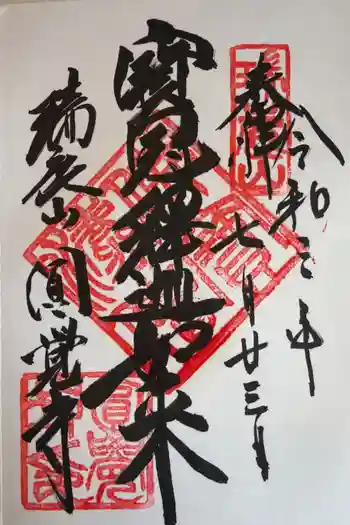 奉拝
令和二年
七月廿三日
寶冠釋迦如来
瑞鹿山
圓覺寺